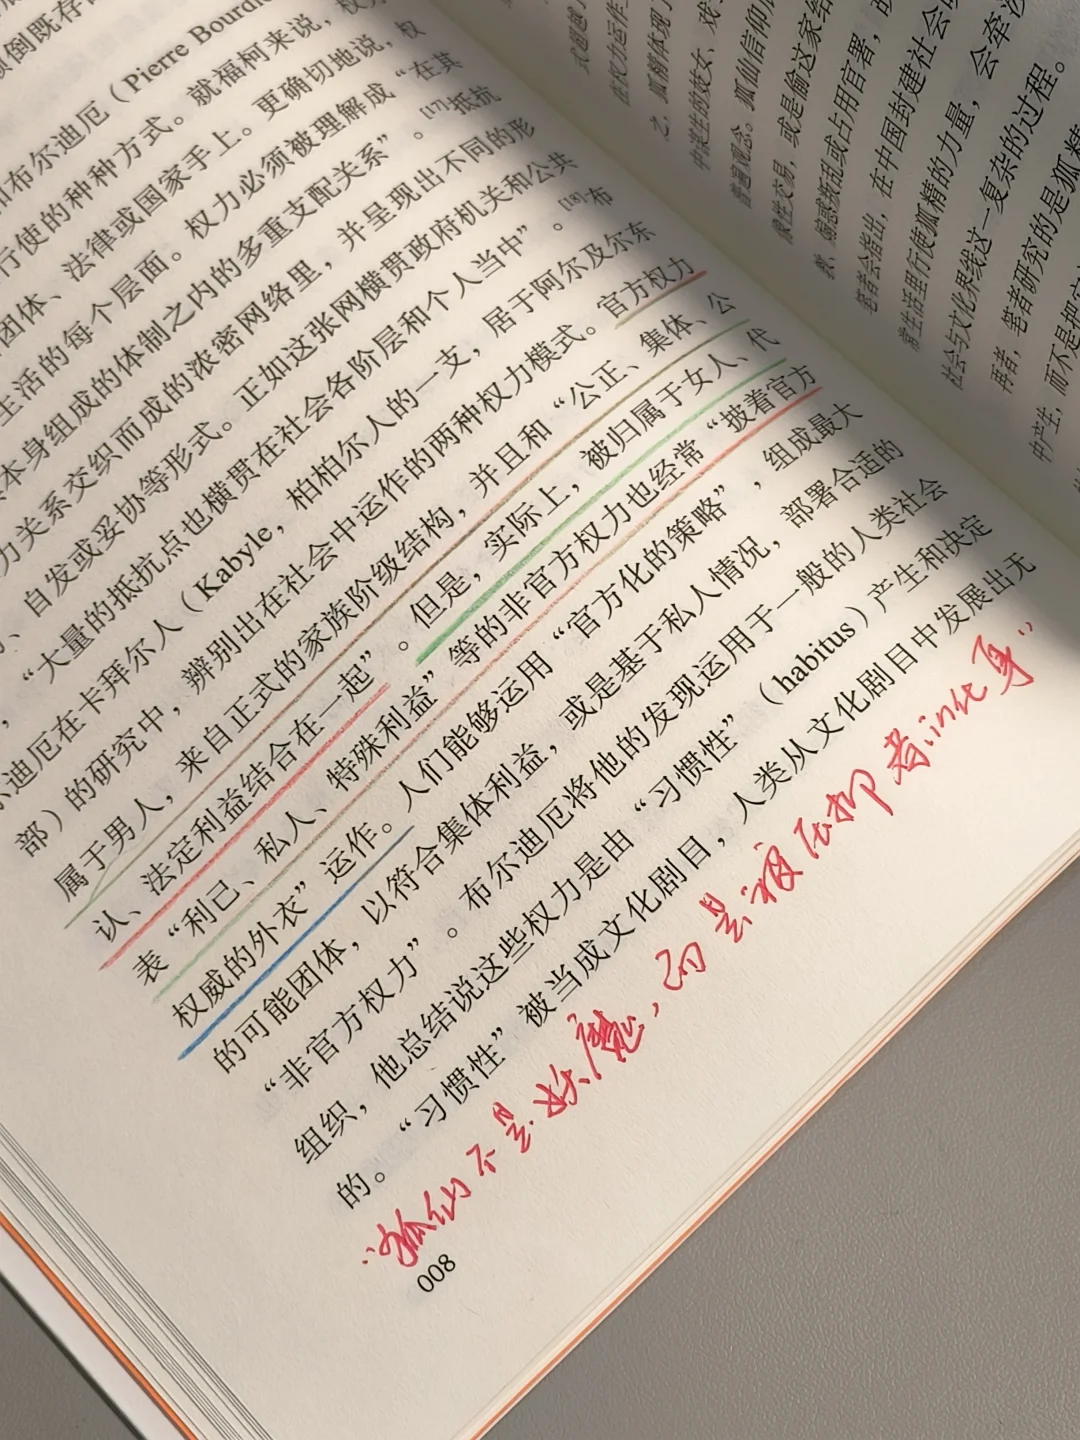 倒既存
布尔迪厄（Pierre Bourdie
行使的种种方式。就福柯来说，权
团体、法律或国家手上。更确切地说，权
生活的每个层面。权力必须被理解成“在其
本身组成的体制之内的多重支配关系”。[17]抵抗
力关系交织而成的浓密网络里，并呈现出不同的形
、自发或妥协等形式。正如这张网横贯政府机关和公共
，“大量的抵抗点也横贯在社会各阶层和个人当中”。[18]布
尔迪厄在卡拜尔人（Kabyle，柏柏尔人的一支，居于阿尔及尔东
部）的研究中，辨别出在社会中运作的两种权力模式。官方权力
属于男人，来自正式的家族阶级结构，并且和“公正、集体、公
认、法定利益结合在一起”。但是，实际上，被归属于女人、代
表“利己、私人、特殊利益”等的非官方权力也经常“披着官方
权威的外衣”运作。人们能够运用“官方化的策略”，组成最大
的可能团体，以符合集体利益，或是基于私人情况，部署合适的
“非官方权力”。布尔迪厄将他的发现运用于一般的人类社会
组织，他总结说这些权力是由“习惯性”（habitus）产生和决定
的。“习惯性”被当成文化剧目，人类从文化剧目中发展出无
“狐仙不是妖魔，而是被压抑者的化身”
008
式超越了
在权力运作
之，狐精体现了
中诞生的妓女、戏
普遍观念。狐仙信仰
像性交易，或是偷这家给
叛乱或占用官署，
笔者会指出，在中国封建社会
常生活里行使狐精的力量，会牵涉
社会与文化界线这一复杂的过程。
再者，笔者研究的是狐精
中产生，而不是把